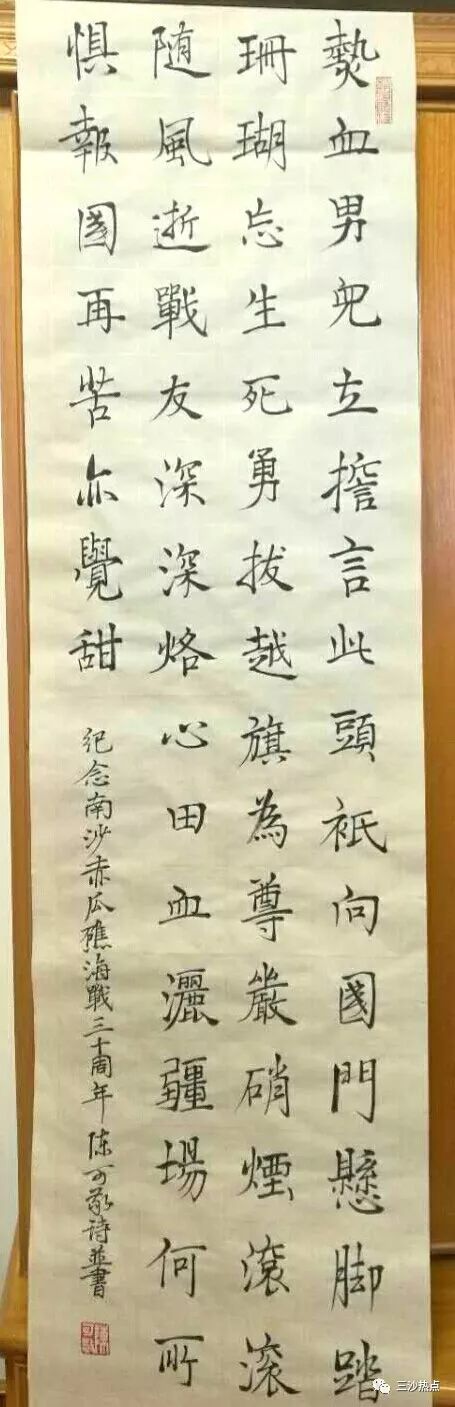 熱血男兒立擔言此頭衹向國門懸脚踏
珊瑚忘生死勇拔越旗為尊嚴硝煙滾滾
随風逝戰友深深烙心田血灑疆場何所
惧報國再苦亦覺甜
纪念南沙赤瓜礁海戰三十周年 陈可敬詩並書
三沙热点